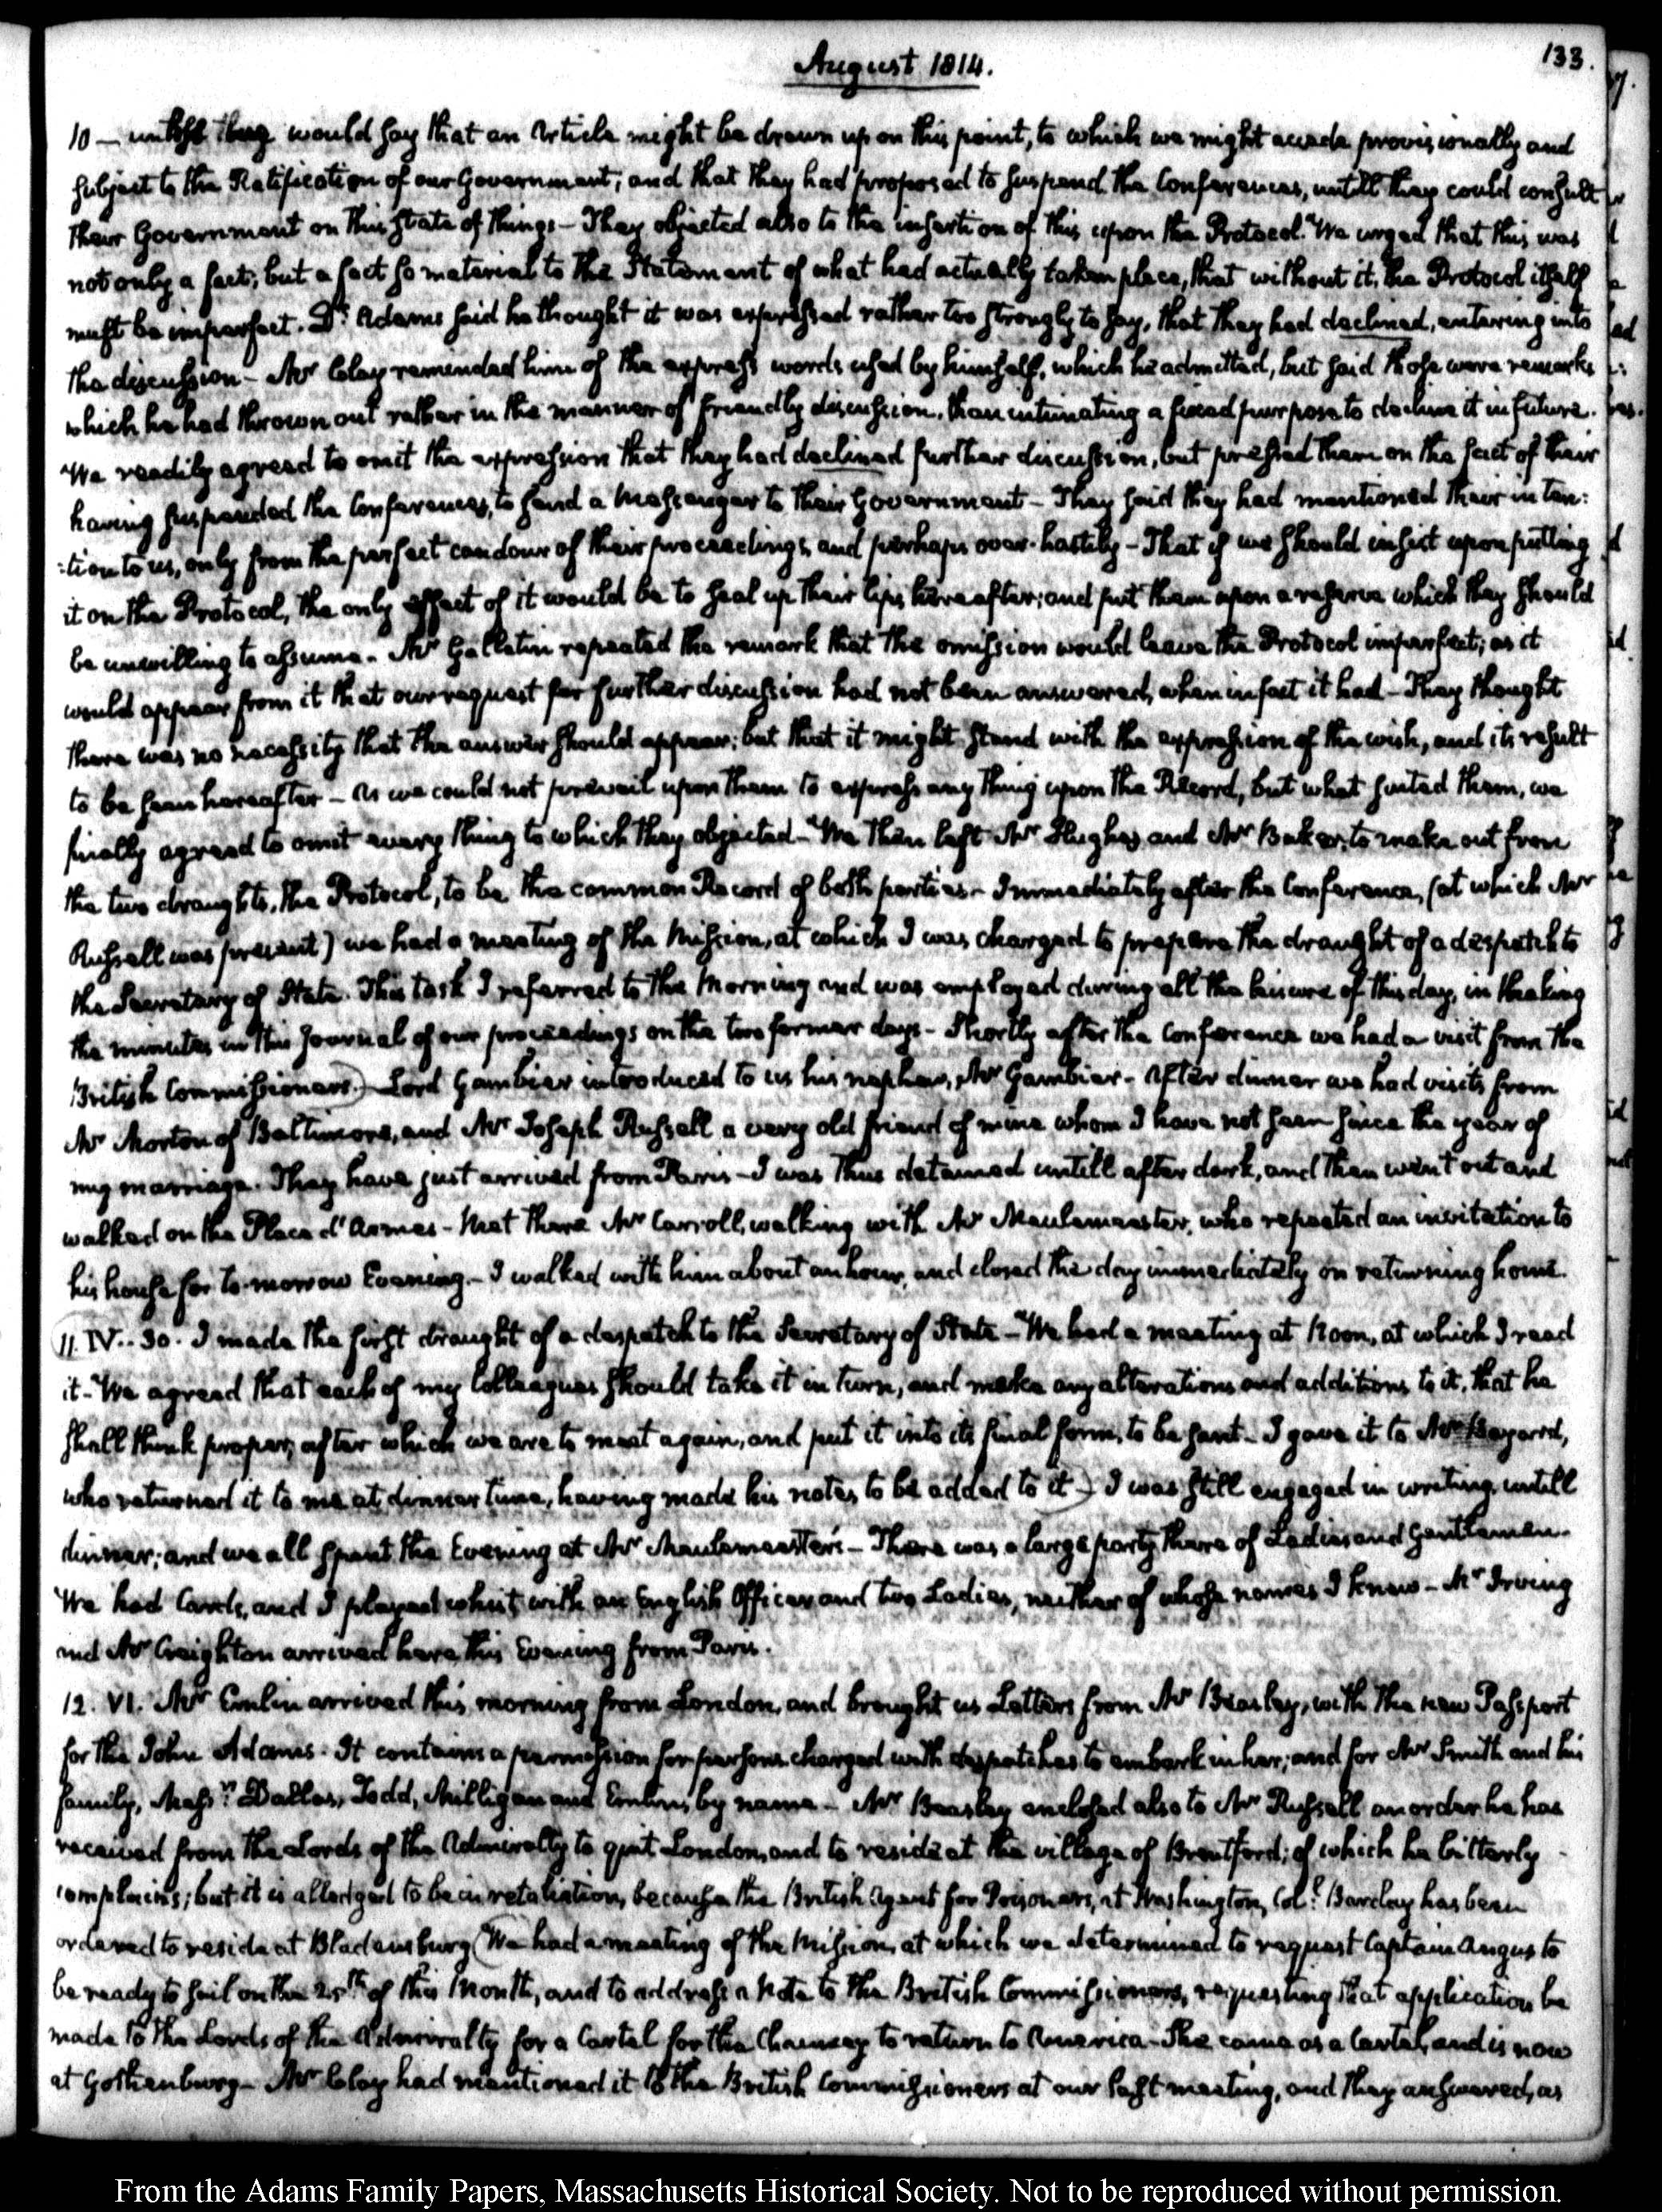 August 1814.
133.
10 — unless they would say that an Article might be drawn up on this point, to which we might accede provisionally and
subject to the Ratification of our Government; and that they had proposed to suspend the Conferences, untill they could consult
their Government on this state of things — They objected also to the insertion of this upon the Protocol. We urged that this was
not only a fact; but a fact so material to the Statement of what had actually taken place, that without it, the Protocol itself
must be imperfect. Dr. Adams said he thought it was expressed rather too strongly to say, that they had declined, entering into
the discussion — Mr Clay reminded him of the express words used by himself, which he admitted, but said those were remarks
which he had thrown out rather in the manner of friendly discussion, than intimating a fixed purpose to decline it in future.
We readily agreed to omit the expression that they had declined further discussion, but pressed them on the fact of their
having suspended the Conferences, to send a Messenger to their Government — They said they had mentioned their inten:
:tion to us, only from the perfect candour of their proceedings, and perhaps over-hastily — That if we should insist upon putting
it on the Protocol, the only effect of it would be to seal up their lips hereafter; and put them upon a reserve which they should
be unwilling to assume. Mr Gallatin repeated the remark that the omission would leave the Protocol imperfect; as it
would appear from it that our request for further discussion had not been answered, when in fact it had — They thought
there was no necessity that the answer should appear; but that it might stand with the expression of the wish, and its result
to be seen hereafter — As we could not prevail upon them to express any thing upon the Record, but what suited them, we
finally agreed to omit every thing to which they objected — We then left Mr Hughes and Mr Baker, to make out from
the two draughts, the Protocol, to be the common Record of both parties — Immediately after the Conference, (at which Mr
Russell was present) we had a meeting of the Mission, at which I was charged to prepare the draught of a despatch to
the Secretary of State. This task I referred to the Morning and was employed during all the leisure of this day, in making
the minutes in this Journal of our proceedings on the two former days — Shortly after the Conference we had a visit from the
British Commissioners.) Lord Gambier introduced to us his nephew, Mr Gambier — After dinner we had visits from
Mr Morton of Baltimore, and Mr Joseph Russell a very old friend of mine whom I have not seen since the year of
my marriage. They have just arrived from Paris — I was thus detained untill after dark, and then went out and
walked on the Place d'Armes — Met there Mr Carroll, walking with Mr Meulemeester, who repeated an invitation to
his house for to-morrow Evening — I walked with him about an hour, and closed the day immediately on returning home.
11. IV..30. I made the first draught of a despatch to the Secretary of State — We had a meeting at Noon, at which I read
it — We agreed that each of my Colleagues should take it in turn, and make any alterations and additions to it, that he
shall think proper; after which we are to meet again, and put it into its final form, to be sent — I gave it to Mr Bayard,
who returned it to me at dinner time, having made his notes to be added to it) I was still engaged in writing, untill
dinner; and we all spent the Evening at Mr Meulemeester's — There was a large party there of Ladies and Gentlemen.
We had Cards, and I played whist with an English Officer and two Ladies, neither of whose names I knew — Mr Irving
and Mr Creighton arrived here this Evening from Paris.
12. VI. Mr Emlin arrived this morning from London, and brought us Letters from Mr Beasley, with the new Passport
for the John Adams. It contains a permission for persons charged with despatches to embark in her; and for Mr Smith and his
family, Messrs. Dallas, Todd, Milligan and Emlin, by name — Mr Beasley enclosed also to Mr Russell an order he has
received from the Lords of the Admiralty to quit London, and to reside at the village of Brentford; of which he bitterly
complains; but it is alledged to be in retaliation, because the British Agent for Prisoners, at Washington, Col: Barclay has been
ordered to reside at Bladensburg (We had a meeting of the Mission, at which we determined to request Captain Angus to
be ready to sail on the 25th of this Month, and to address a Note to the British Commissioners, requesting that application be
made to the Lords of the Admiralty for a Cartel for the Chauncey to return to America — She came as a Cartel, and is now
at Gothenburg — Mr Clay had mentioned it to the British Commissioners at our last meeting, and they answered, as
From the Adams Family Papers, Massachusetts Historical Society. Not to be reproduced without permission.